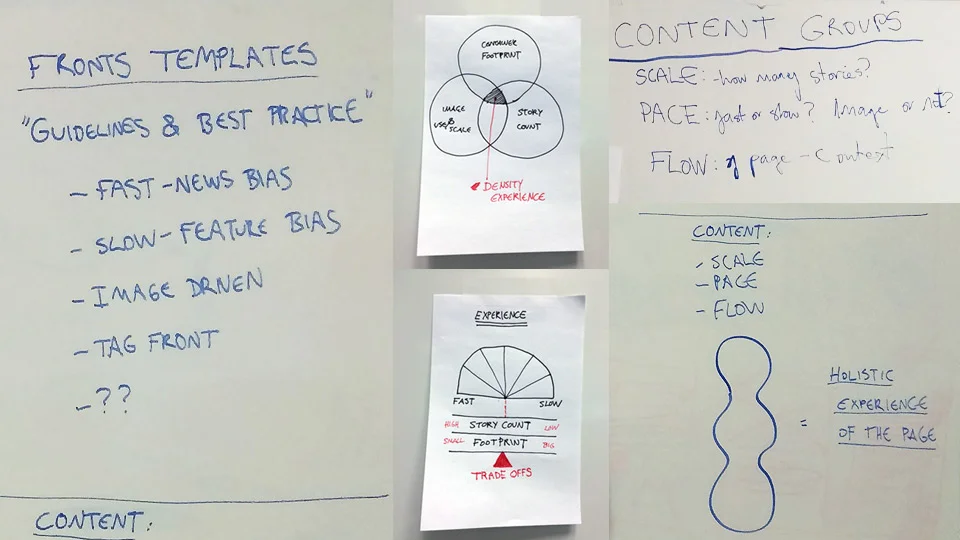 FRONTS TEMPLATES
"GUIDELINES & BEST PRACTICE"
- FAST-NEWS BIAS
- SLOW-FEATURE BIAS
- IMAGE DRIVEN
- TAG FRONT
- ??
CONTENT:
CONTAINER
FOOTPRINT
IMAGE
USE &
SCALE
STORY
COUNT
DENSITY
EXPERIENCE
EXPERIENCE
FAST
SLOW
HIGH STORY COUNT LOW
SMALL FOOTPRINT BIG
TRADE OFFS
CONTENT GROUPS
SCALE: - how many stories?
PACE: fast or slow? Image or not?
FLOW: of page - Context
CONTENT:
- SCALE
- PACE
- FLOW
= HOLISTIC
EXPERIENCE
OF THE PAGE